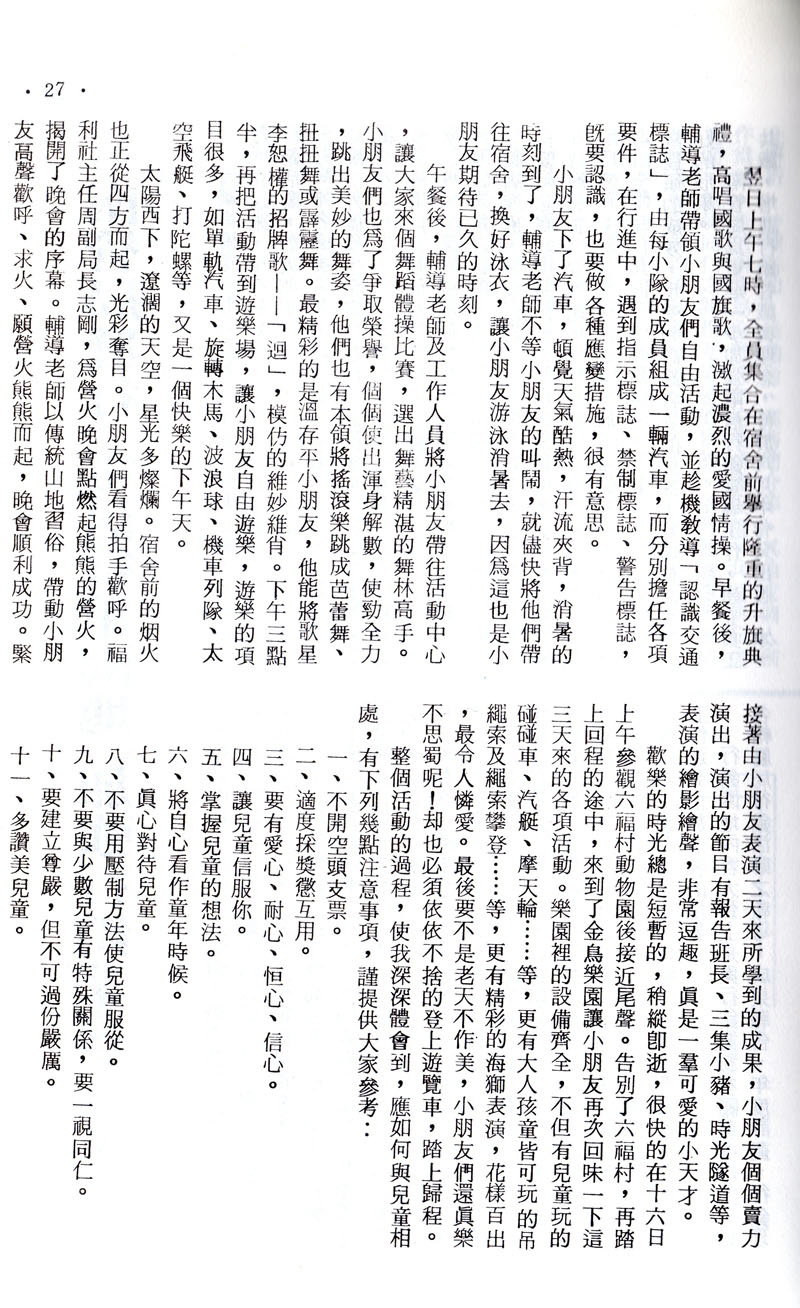 • 27 •
翌日上午七時，全員集合在宿舍前舉行隆重的升旗典
禮，高唱國歌與國旗歌，激起濃烈的愛國情操。早餐後，
輔導老師帶領小朋友們自由活動，並趁機教導「認識交通
標誌」，由每小隊的成員組成一輛汽車，而分別擔任各項
要件，在行進中，遇到指示標誌、禁制標誌、警告標誌，
旣要認識，也要做各種應變措施，很有意思。
小朋友下了汽車，頓覺天氣酷熱，汗流夾背，消暑的
時刻到了，輔導老師不等小朋友的叫鬧，就儘快將他們帶
往宿舍，換好泳衣，讓小朋友游泳消暑去，因爲這也是小
朋友期待已久的時刻。
午餐後，輔導老師及工作人員將小朋友帶往活動中心
，讓大家來個舞蹈體操比賽，選出舞藝精湛的舞林高手。
小朋友們也爲了爭取榮譽，個個使出渾身解數，使勁全力
，跳出美妙的舞姿，他們也有本領將搖滾樂跳成芭蕾舞、
扭扭舞或霹靂舞。最精彩的是溫存平小朋友，他能將歌星
李恕權的招牌歌——「迴」，模仿的維妙維肖。下午三點
半，再把活動帶到遊樂場，讓小朋友自由遊樂，遊樂的項
目很多，如單軌汽車、旋轉木馬、波浪球、機車列隊、太
空飛艇、打陀螺等，又是一個快樂的下午天。
太陽西下，遼濶的天空，星光多燦爛。宿舍前的烟火
也正從四方而起，光彩奪目。小朋友們看得拍手歡呼。福
利社主任周副局長志剛，爲營火晚會點燃起熊熊的營火，
揭開了晚會的序幕。輔導老師以傳統山地習俗，帶動小朋
友高聲歡呼、求火、願營火熊熊而起，晚會順利成功。緊
接著由小朋友表演二天來所學到的成果，小朋友個個賣力
演出，演出的節目有報告班長、三集小豬、時光隧道等，
表演的繪影繪聲，非常逗趣，眞是一羣可愛的小天才。
歡樂的時光總是短暫的，稍縱卽逝，很快的在十六日
上午參觀六福村動物園後接近尾聲。告別了六福村，再踏
上回程的途中，來到了金鳥樂園讓小朋友再次回味一下這
三天來的各項活動。樂園裡的設備齊全，不但有兒童玩的
碰碰車、汽艇、摩天輪……等，更有大人孩童皆可玩的吊
繩索及繩索攀登……等，更有精彩的海獅表演，花樣百出
，最令人憐愛。最後要不是老天不作美，小朋友們還眞樂
不思蜀呢！却也必須依依不捨的登上遊覽車，踏上歸程。
整個活動的過程，使我深深體會到，應如何與兒童相
處，有下列幾點注意事項，謹提供大家參考：
一、不開空頭支票。
二、適度採獎懲互用。
三、要有愛心、耐心、恒心、信心。
四、讓兒童信服你。
五、掌握兒童的想法。
六、將自心看作童年時候。
七、眞心對待兒童。
八、不要用壓制方法使兒童服從。
九、不要與少數兒童有特殊關係，要一視同仁。
十、要建立尊嚴，但不可過份嚴厲。
十一、多讚美兒童。